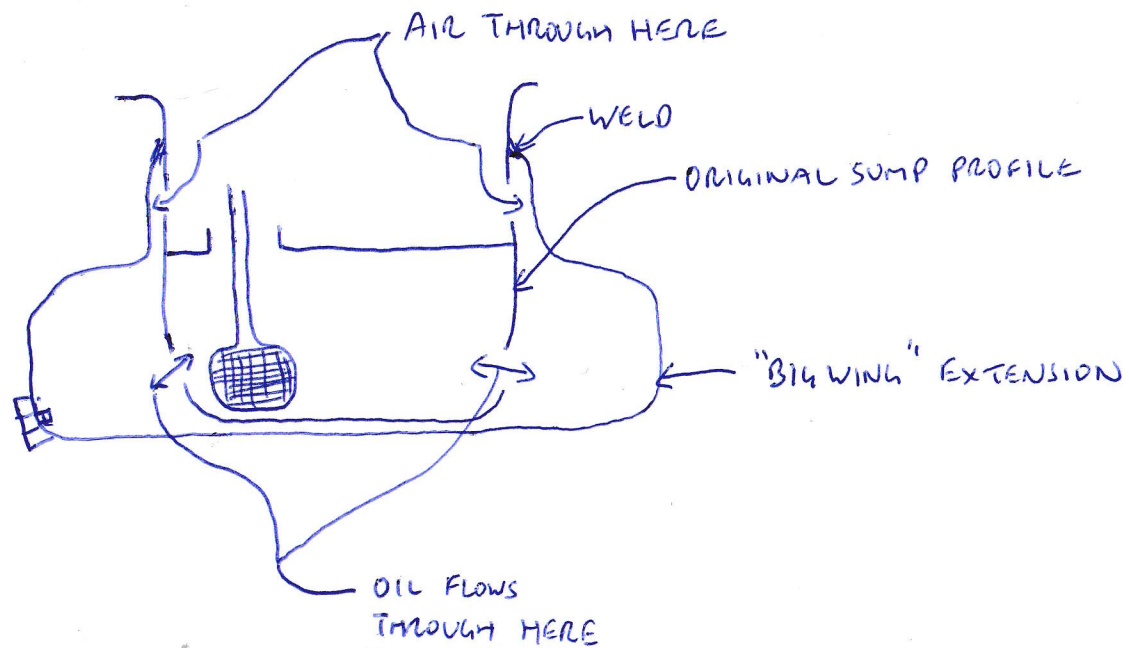 AIR THROUGH HERE
WELD
ORIGINAL SUMP PROFILE
"BIG WING" EXTENSION
OIL FLOWS
THROUGH HERE